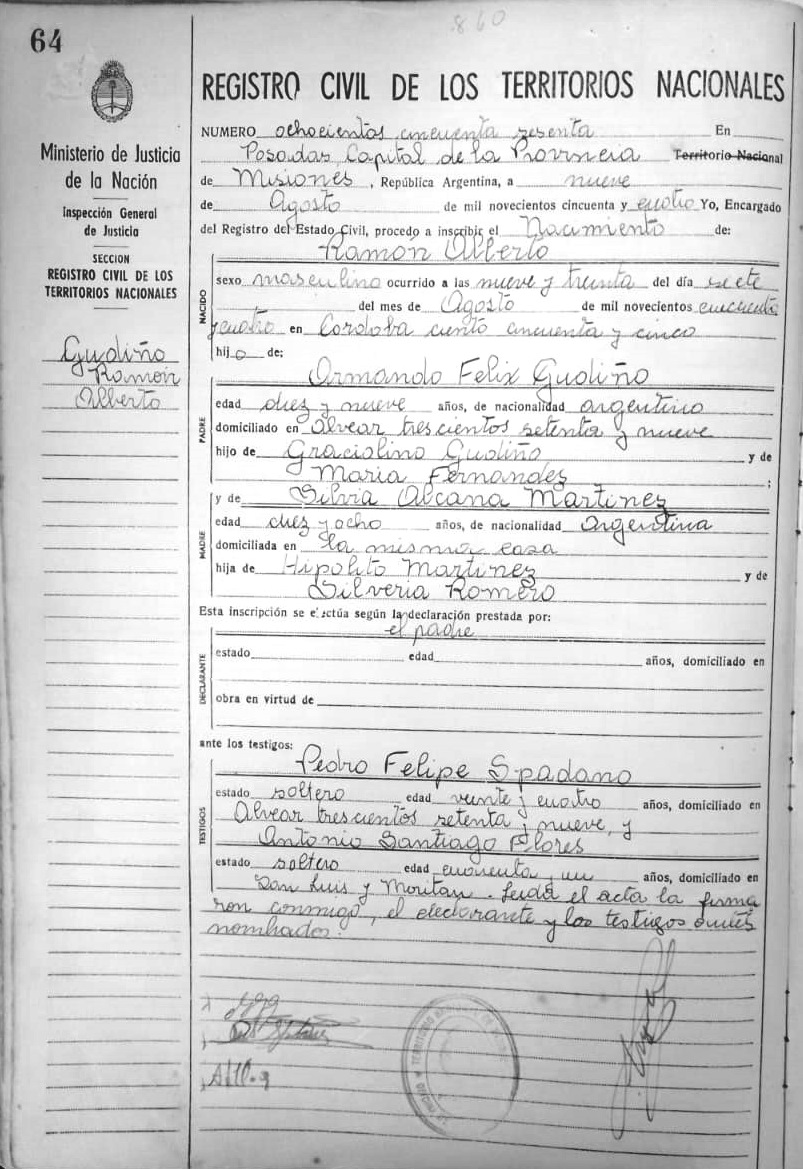 860
64
REGISTRO CIVIL DE LOS TERRITORIOS NACIONALES
Ministerio de Justicia
de la Nación
Inspección General
de Justicia
SECCION
REGISTRO CIVIL DE LOS
TERRITORIOS NACIONALES
Gudiño
Ramón
Alberto
NUMERO ochocientos cincuenta sesenta En
Posadas Capital de la Provincia Territorio Nacional
de Misiones, República Argentina, a nueve
de Agosto de mil novecientos cincuenta y cuatro Yo, Encargado
del Registro del Estado Civil, procedo a inscribir el Nacimiento de:
Ramón Alberto
NACIDO
sexo masculino ocurrido a las nueve y treinta del día siete
del mes de Agosto de mil novecientos cincuenta
y cuatro en Cordoba ciento cincuenta y cinco
hijo de:
PADRE
Armando Felix Gudiño
edad diez y nueve años, de nacionalidad argentino
domiciliado en Alvear trescientos setenta y nueve
hijo de Graciolino Gudiño y de
Maria Fernandez ;
MADRE
y de Silvia Alcana Martinez
edad diez y ocho años, de nacionalidad Argentina
domiciliada en la misma casa
hija de Hipolito Martinez y de
Silveria Romero
Esta inscripción se efectúa según la declaración prestada por:
el padre
DECLARANTE
estado edad años, domiciliado en
obra en virtud de
ante los testigos:
TESTIGOS
Pedro Felipe Spadano
estado soltero edad veinte y cuatro años, domiciliado en
Alvear trescientos setenta y nueve, y
Antonio Santiago Flores
estado soltero edad cuarenta y un años, domiciliado en
San Luis y Moritan. Leida el acta la firma
ron conmigo, el declarante y los testigos antes
nombrados.